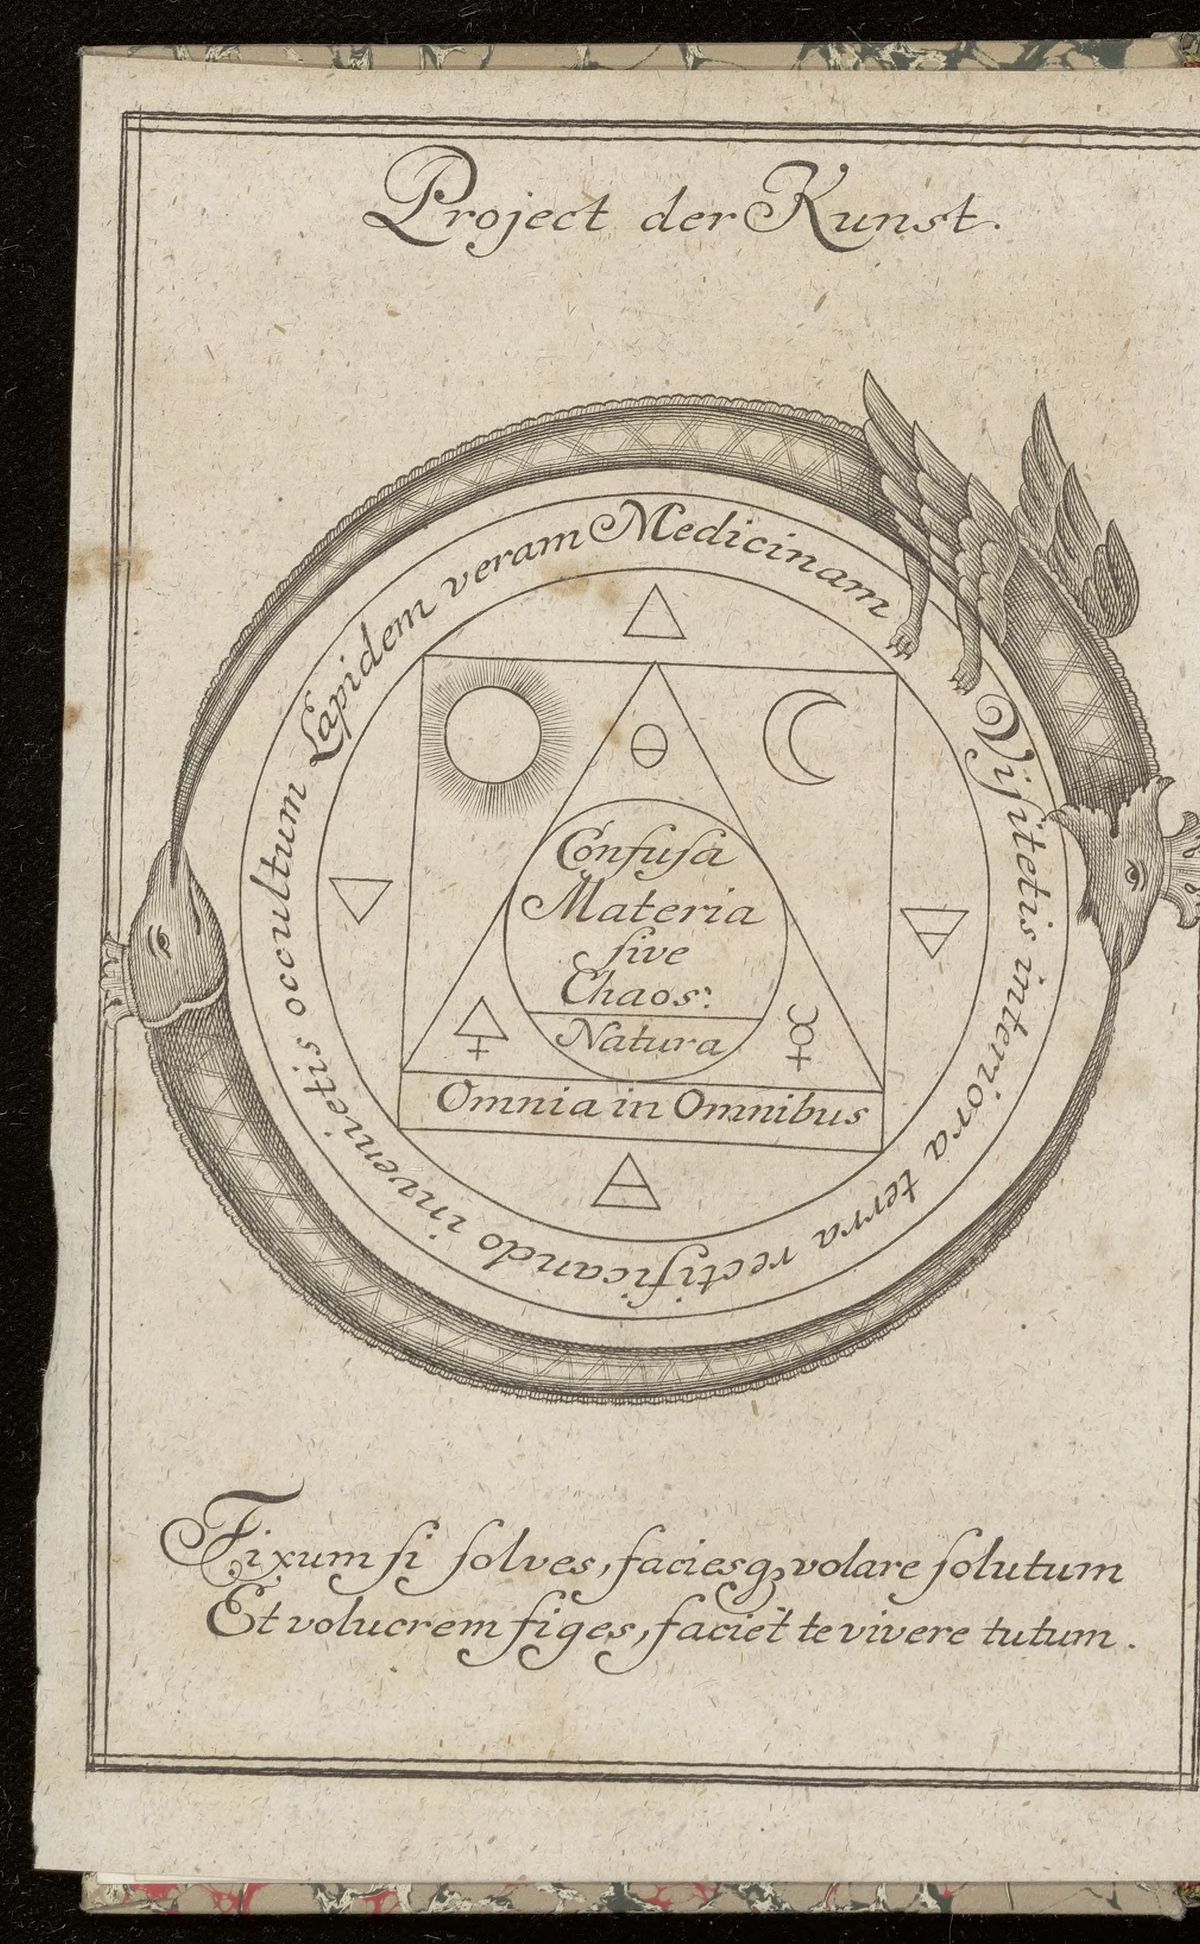 Project der Kunst.
Visitetis interiora terra rectificando invenietis occultum Lapidem veram Medicinam
Confusa
Materia
sive
Chaos:
Natura
Omnia in Omnibus
Fixum si solves, faciesq; volare solutum
Et volucrem figes, faciet te vivere tutum.